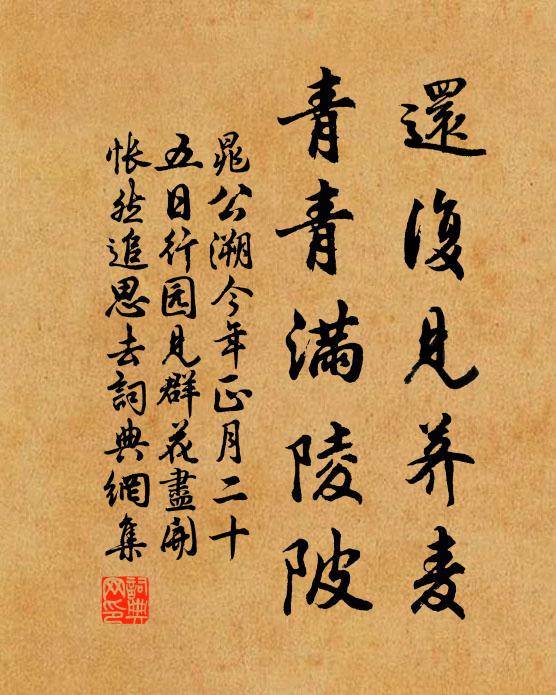 還復見荞麦
青青滿陵陂
晁公溯今年正月二十
五日行园見群花盡開
悵然追思去詞典網集
詞典
网印